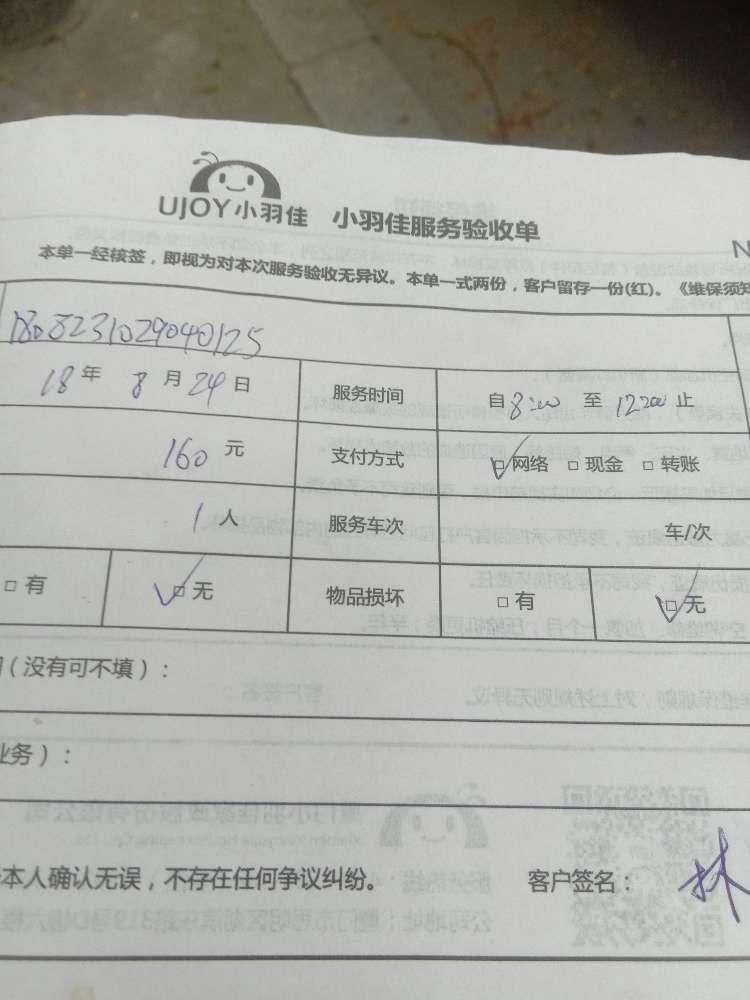 UJOY小羽佳 小羽佳服务验收单
N
本单一经核签，即视为对本次服务验收无异议。本单一式两份，客户留存一份(红)。《维保须知
1808231029040125
18年 8月 24日 服务时间 自8:00 至 12:00 止
160 元 支付方式 □网络 □现金 □转账
1人 服务车次 车/次
□有 □无 物品损坏 □有 □无
(没有可不填)：
业务)：
本人确认无误，不存在任何争议纠纷。 客户签名： 林